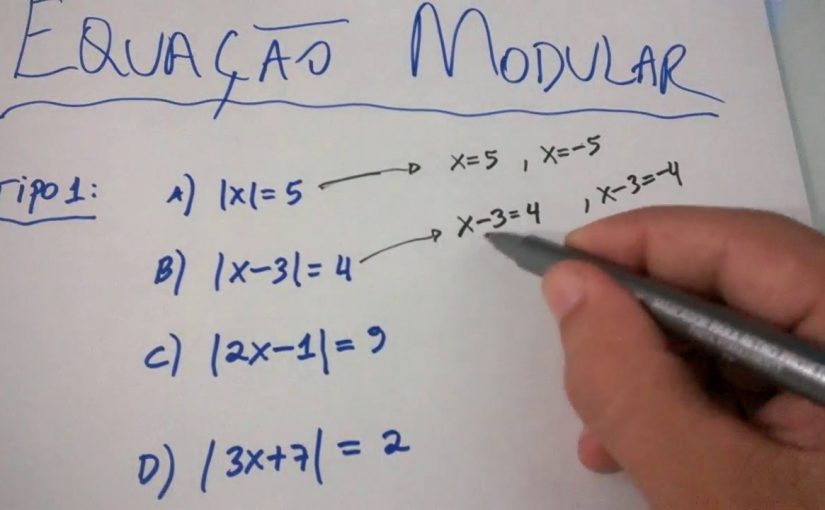 EQUAÇÃO MODULAR
TIPO 1: A) |x|= 5 → x=5 , x=-5
B) |x-3|= 4 → x-3=4 , x-3=-4
C) |2x-1|= 9
D) |3x+7|= 2